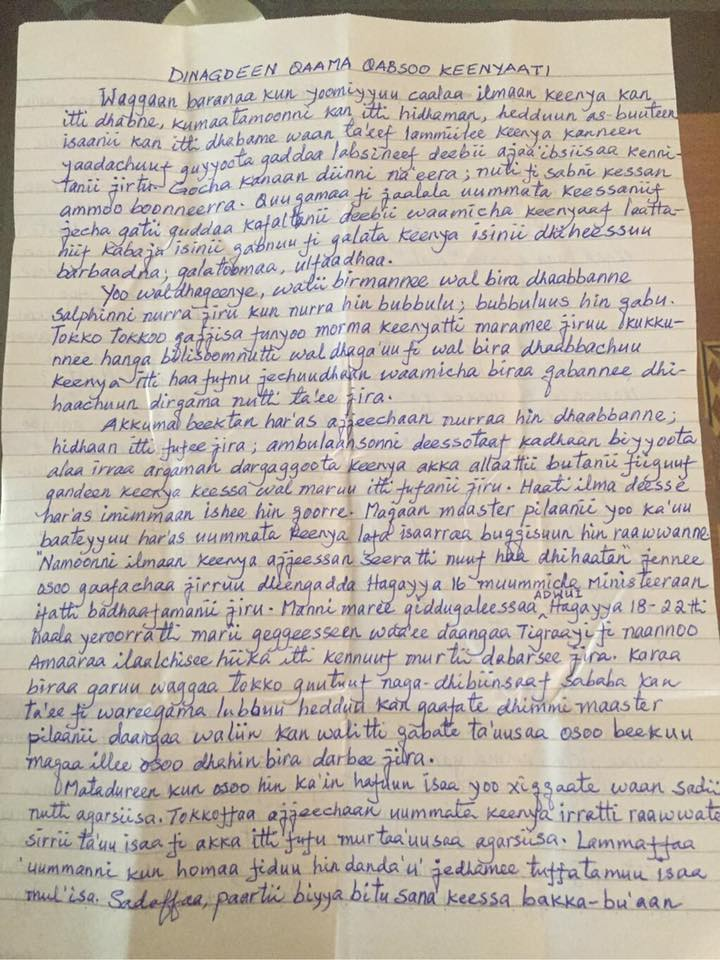 DINAGDEEN QAAMA QABSOO KEENYAATI
Waggaan baranaa kun yoomiyyuu caalaa ilmaan keenya kan
itti dhabne, kumaatamoonni kan itti hidhaman, hedduun as-buuteen
isaanii kan itti dhabame waan ta'eef lammiilee keenya kanneen
yaadachuuf guyyoota gaddaa labsineef deebii ajaa'ibsiisaa kenni-
tanii jirtu. Gocha kanaan diinni na'eera; nuti fi sabni kessan
ammoo boonneerra. Quuqamaa fi jaalala uummata keessaniif
jecha gatii guddaa kafaltanii deebii waamicha keenyaaf laatta-
niif kabaja isinii qabnuu fi galata keenya isinii dhiheessuu
barbaadna; galatoomaa, ulfaadhaa.
Yoo waldhageenye, walii birmannee wal bira dhaabbanne
salphinni nurra jiru kun nurra hin bubbulu; bubbuluus hin qabu.
Tokko tokkoo gajjisa funyoo morma keenyatti maramee jiruu kukku-
nnee hanga bilisoomnutti wal dhaga'uu fi wal bira dhaabbachuu
keenya itti haa fufnu jechuudhaan waamicha biraa qabannee dhi-
haachuun dirqama nutti ta'ee jira.
Akkuma beektan har'as ajjeechaan nurraa hin dhaabbanne;
hidhaan itti fufee jira; ambulaansonni deessotaaf kadhaan biyyoota
alaa irraa argaman dargaggoota keenya akka allaattii butanii fiiguuf
gandeen keenya keessa wal maruu itti fufanii jiru. Haati ilma deesse
har'as imimmaan ishee hin qoorre. Maqaan maaster pilaanii yoo ka'uu
baateyyuu har'as uummata keenya lafa isaarraa buqqisuun hin raawwanne.
"Namoonni ilmaan keenya ajjeessan seeratti nuuf haa dhihaatan" jennee
osoo gaafachaa jirruu dheengadda Hagayya 16 muummicha Ministeeraan
itatti badhaafamanii jiru. Manni maree giddugaleessaa ADWUI Hagayya 18-22tti
haala yeroorratti marii geggeesseen waa'ee daangaa Tigraayi fi naannoo
Amaaraa ilaalchisee hiika itti kennuuf murtii dabarsee jira. Karaa
biraa garuu waggaa tokko guutuuf naga-dhibiinsaaf sababa kan
ta'ee fi wareegama lubbuu hedduu kan gaafate dhimmi maaster
pilaanii daangaa waliin kan walitti qabate ta'uusaa osoo beekuu
maqaa illee osoo dhahin bira darbee jira.
Matadureen kun osoo hin ka'in hafuun isaa yoo xiqqaate waan sadii
nutti agarsiisa. Tokkoffaa ajjeechaan uummata keenya irratti raawwate
sirrii ta'uu isaa fi akka itti fufu murtaa'uusaa agarsiisa. Lammaffaa
'uummanni kun homaa fiduu hin danda'u' jedhamee tuffatamuu isaa
mul'isa. Sadaffaa, paartii biyya bitu sana keessa bakka-bu'aan